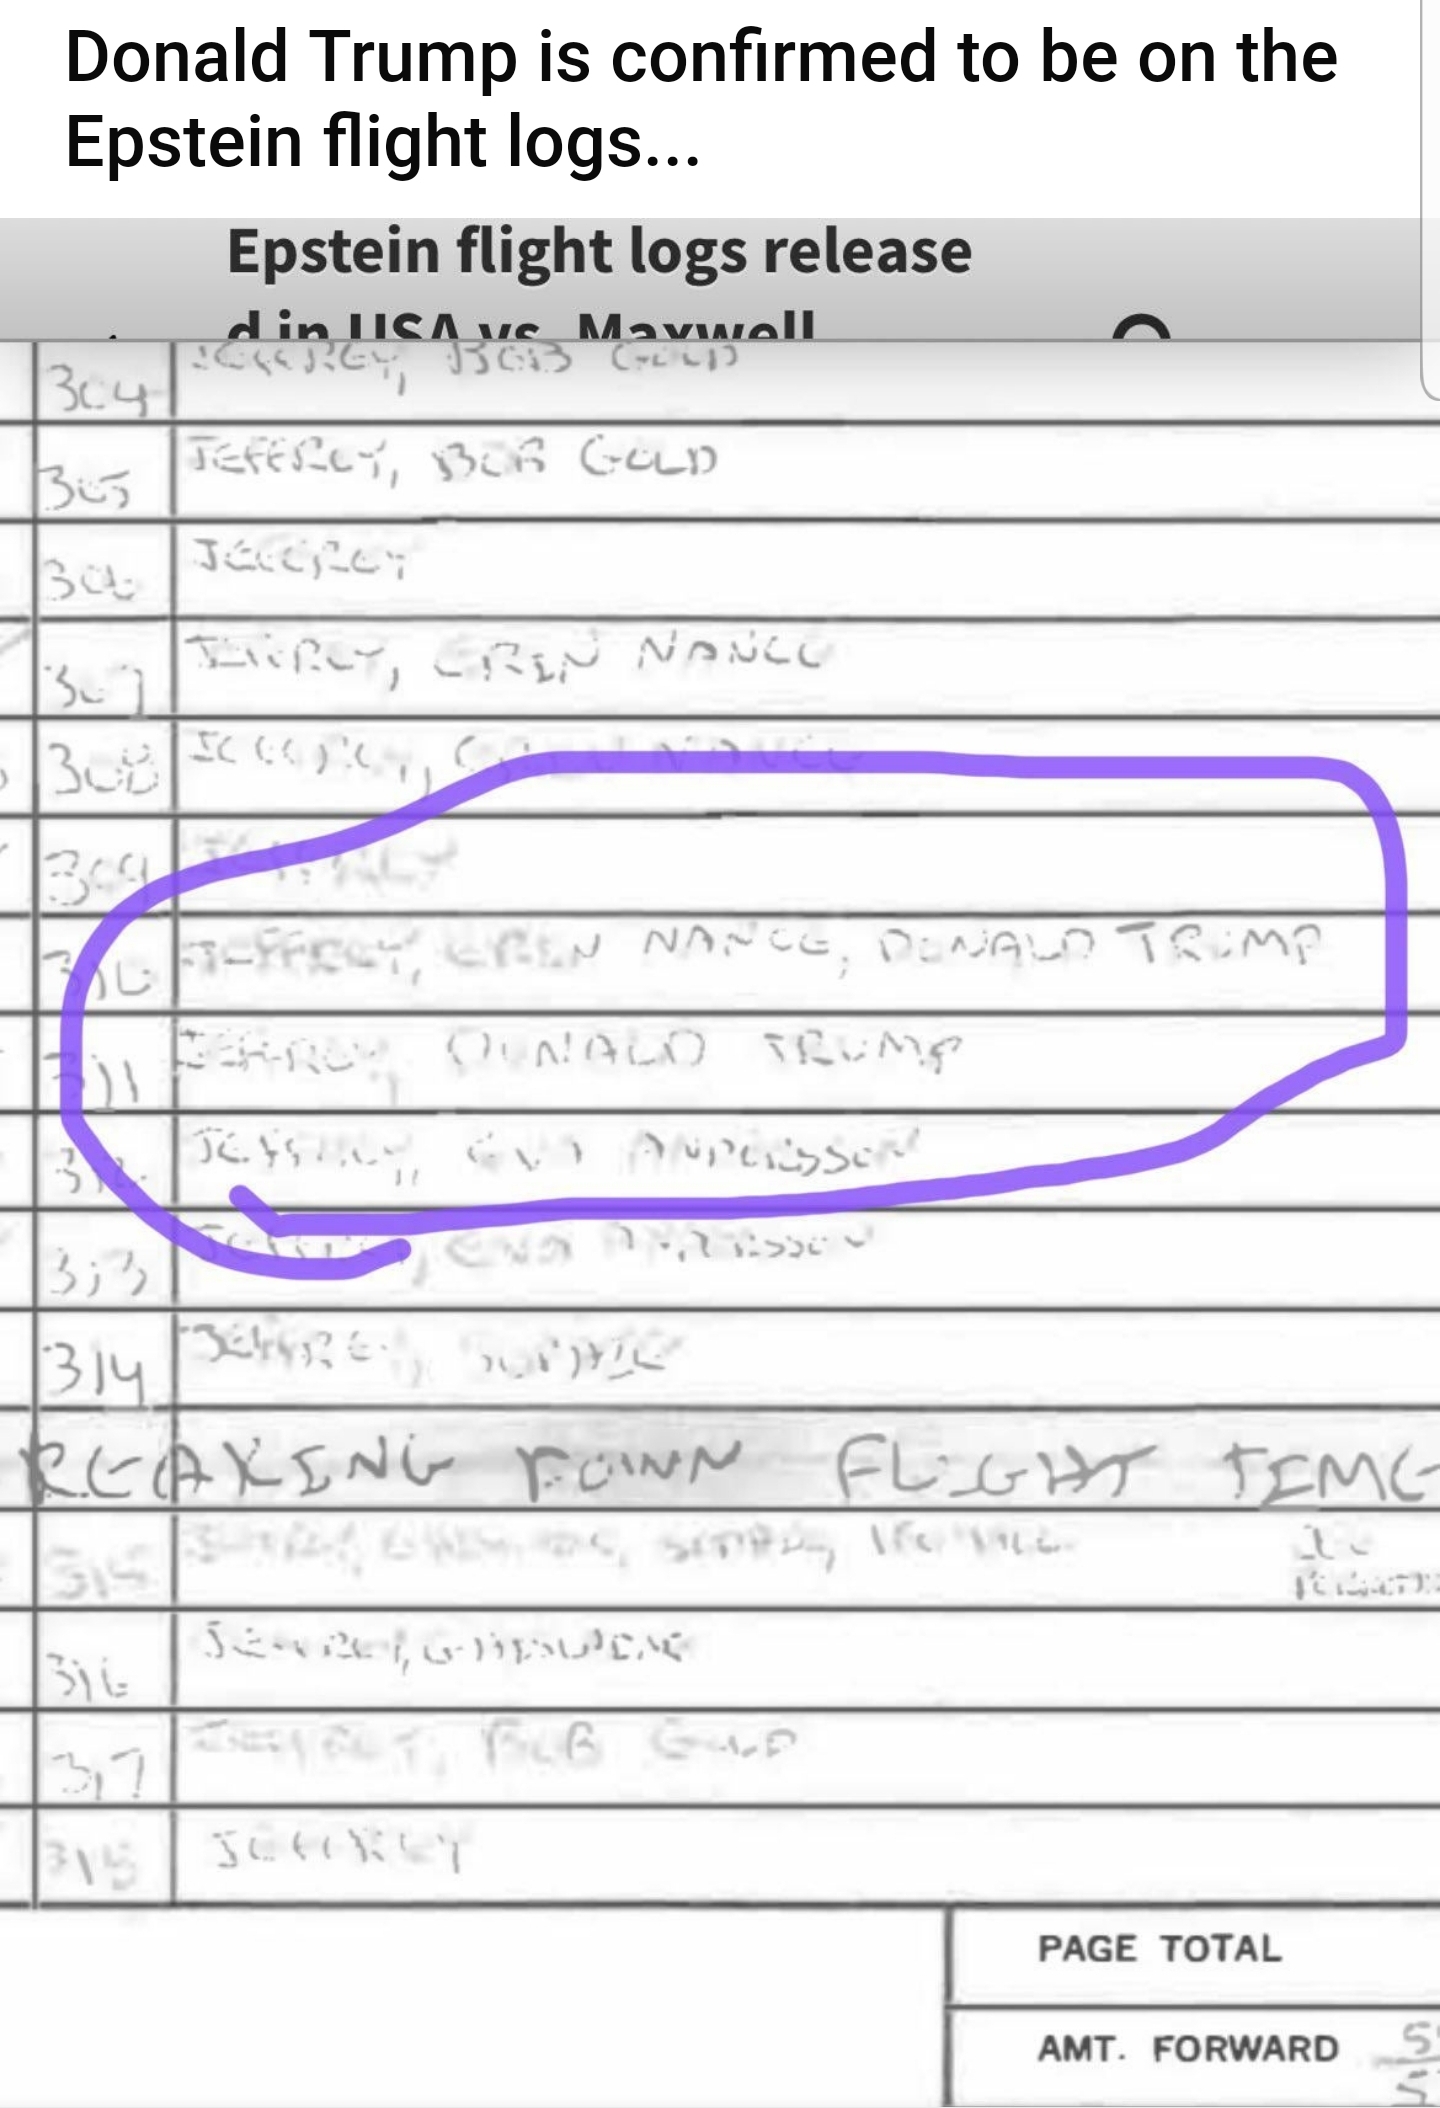 Donald Trump is confirmed to be on the
Epstein flight logs...
Epstein flight logs release
d in USA vs. Maxwell
304 JEFFREY, BOB GOLD
305 JEFFREY, BOB GOLD
306 JEFFREY
307 JEFFREY, EREN NANCE
308 JEFFREY, NANCE
309 JEFFREY
310 JEFFREY, EREN NANCE, DONALD TRUMP
311 JEFFREY, DONALD TRUMP
312 JEFFREY, EVA ANDERSSON
313 JEFFREY, EVA ANDERSSON
314 JEFFREY, SOPHIE
FLIGHT TIME
315
316 JEFFREY,
317 JEFFREY, BOB GOLD
318 JEFFREY
PAGE TOTAL
AMT. FORWARD